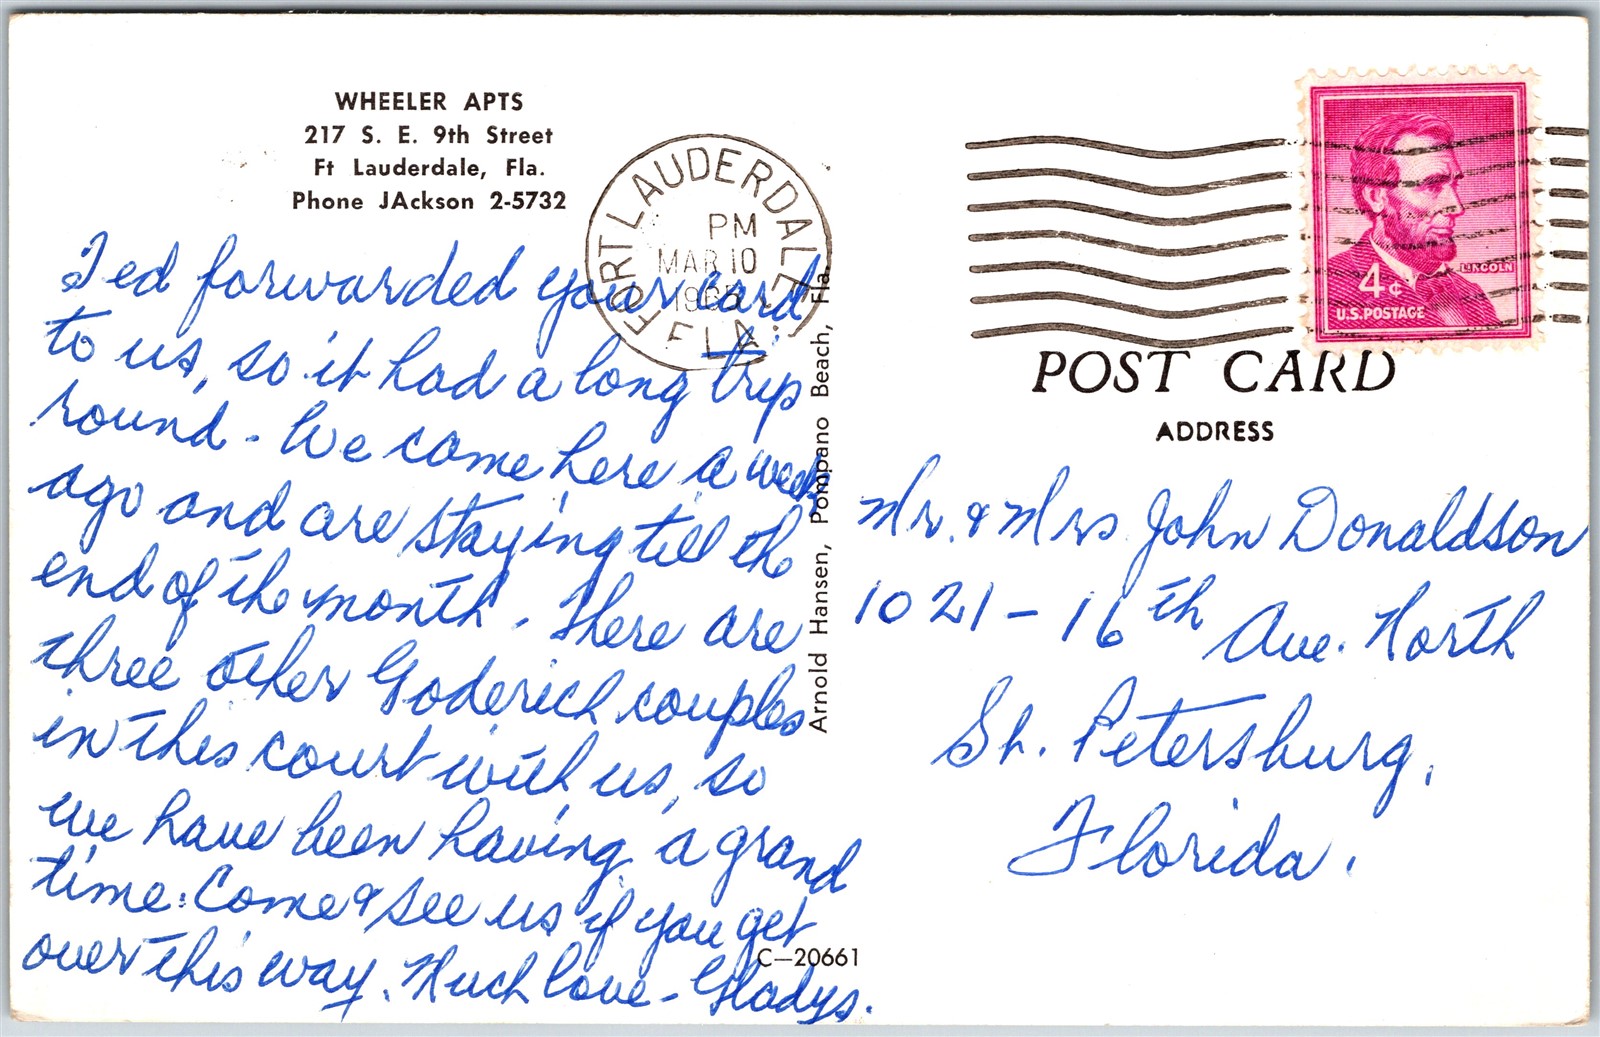 WHEELER APTS
217 S. E. 9th Street
Ft Lauderdale, Fla.
Phone JAckson 2-5732
FORT LAUDERDALE,
PM
MAR 10
FLA.
4¢
LINCOLN
U.S. POSTAGE
Ted forwarded your card
to us, so it had a long trip
round - We came here a week
ago and are staying till the
end of the month. There are
three other Goderich couples
in this court with us, so
we have been having a grand
time. Come & see us if you get
over this way. Much love - Gladys.
Arnold Hansen, Pompano Beach, Fla.
C-20661
POST CARD
ADDRESS
Mr. & Mrs John Donaldson
1021 - 16th Ave. North
St. Petersburg,
Florida.